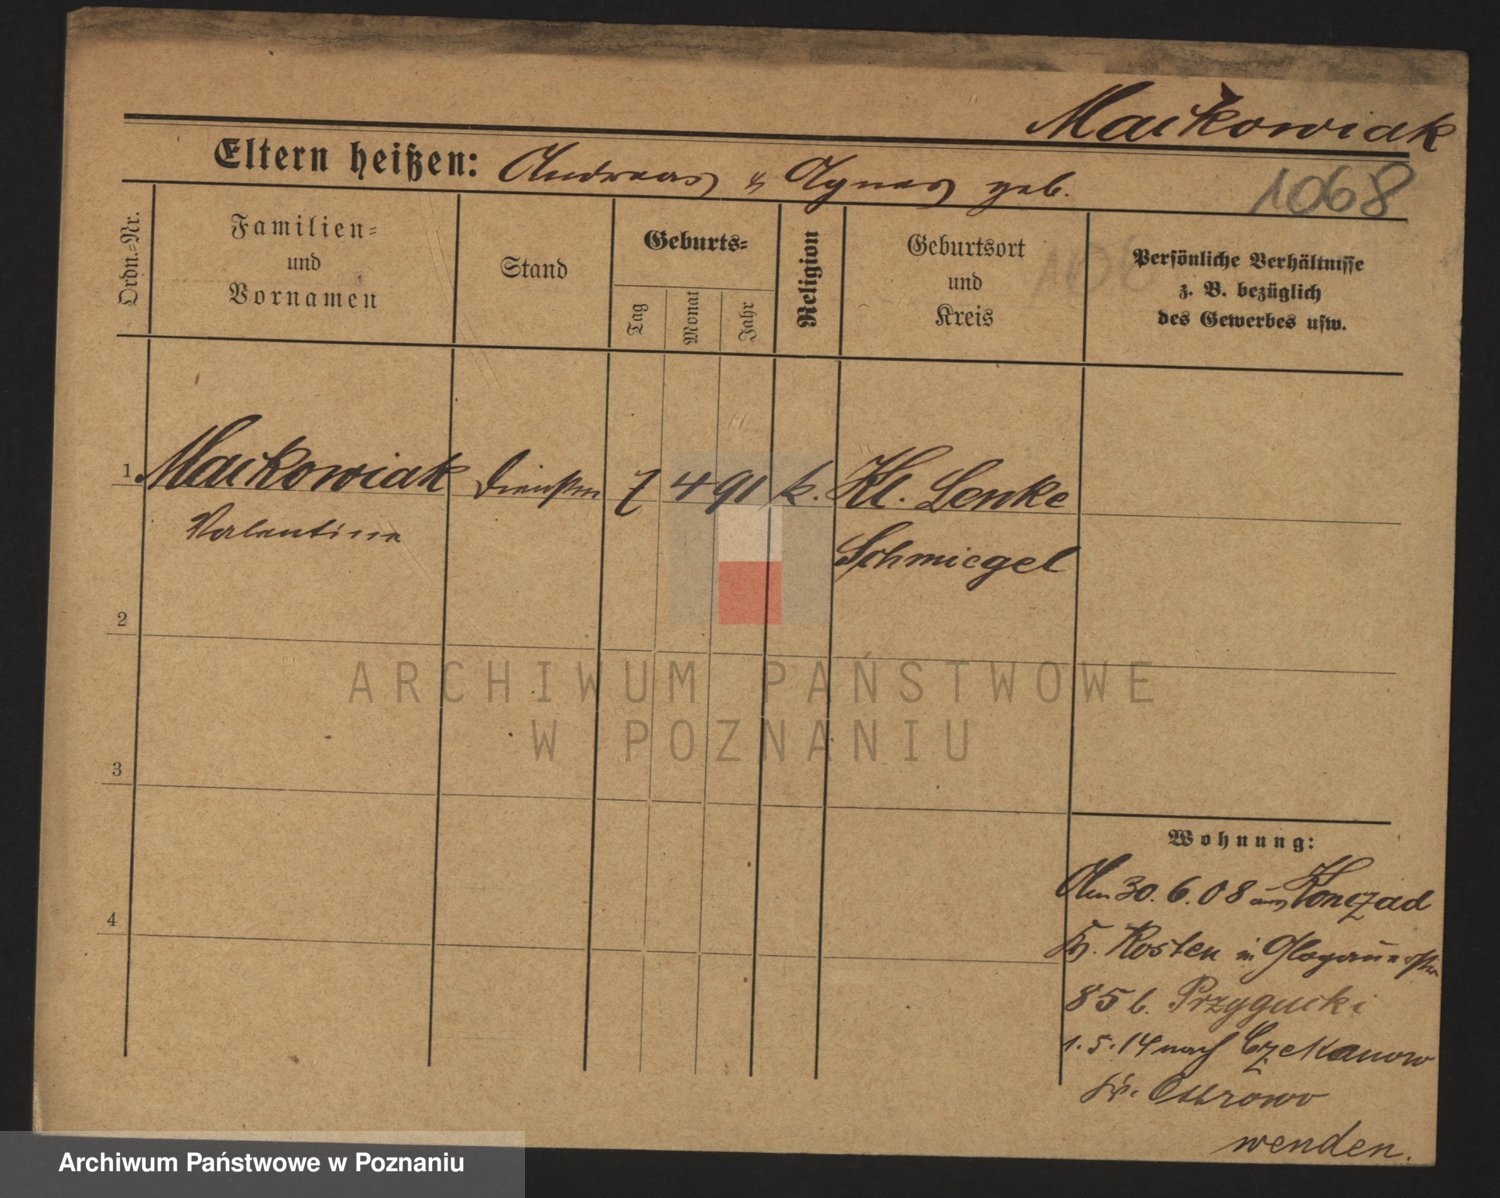 Maćkowiak
Eltern heißen: Andreas u Agnes geb.
1068
Ordn.=Nr.
Familien=
und
Vornamen
Stand
Geburts=
Tag
Monat
Jahr
Religion
Geburtsort
und
Kreis
Persönliche Verhältnisse
z. B. bezüglich
des Gewerbes usw.
1. Maćkowiak Dienstm 7 4 91 k. Kl. Lenke
Valentine Schmiegel
2
3
4
Wohnung:
Am 30.6.08 aus Konczad
Kr. Kosten in Glogauerstr
85 b. Przygucki
1.5.14 nach Czekanow
Kr. Ostrowo
wenden.
ARCHIWUM PAŃSTWOWE
W POZNANIU
Archiwum Państwowe w Poznaniu